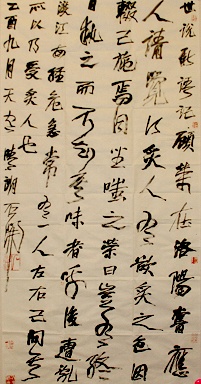 世說新語記顧榮在洛陽嘗應
人請覺行炙人有欲炙之色因
輟己施焉同坐嗤之榮曰豈有終
日執之而不知其味者乎後遭亂
渡江每經危急常有一人左右己問其
所以乃受炙人也
乙酉九月